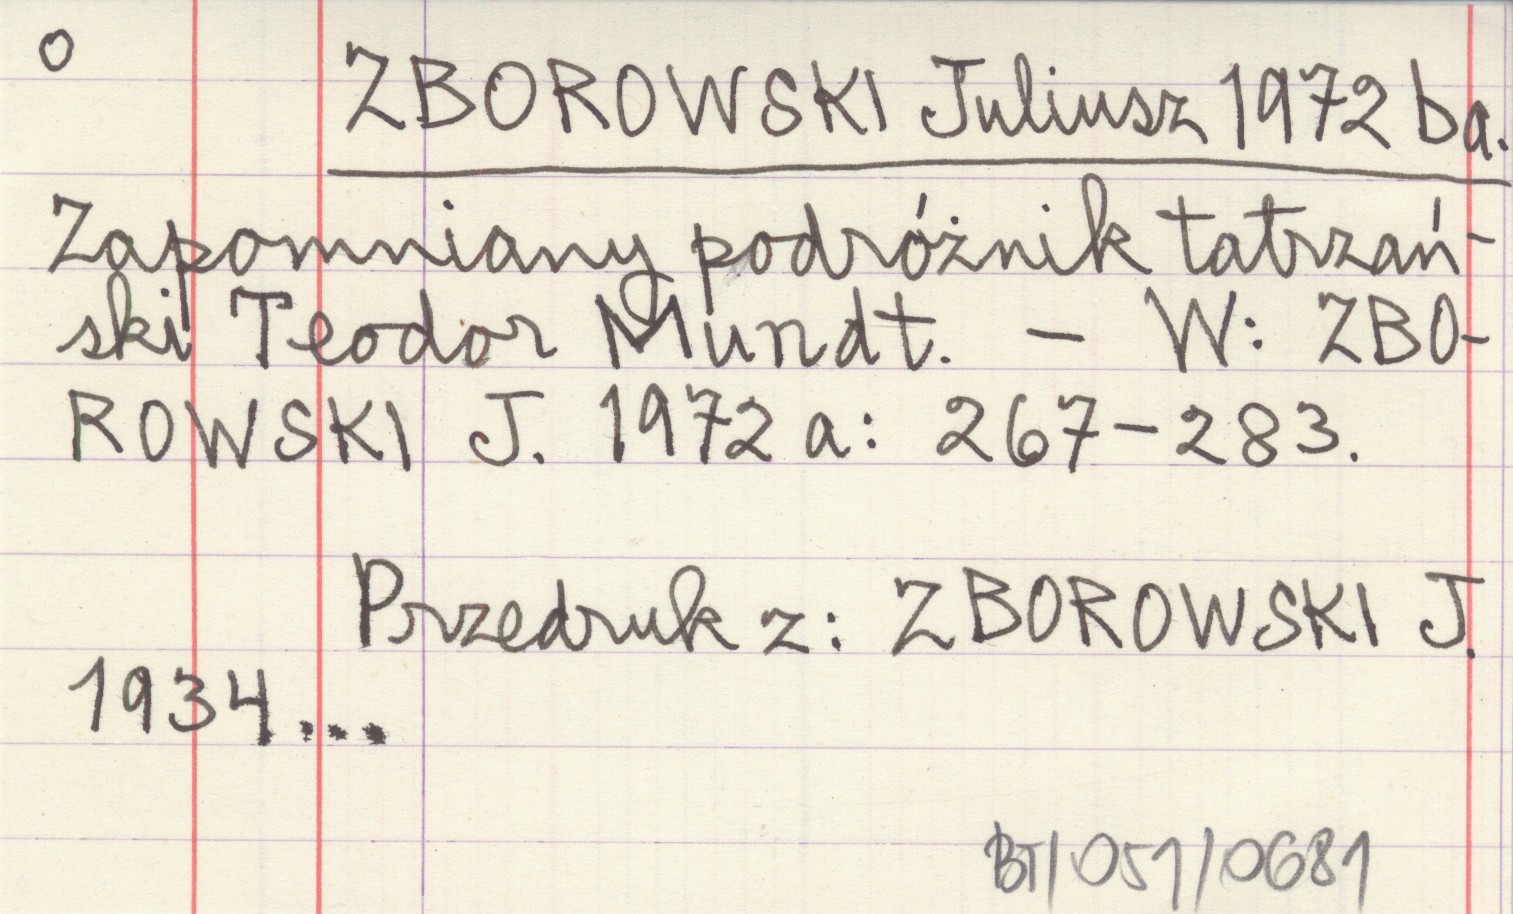 o ZBOROWSKI Juliusz 1972 ba.
Zapomniany podróżnik tatrzań-
ski Teodor Mundt. – W: ZBO-
ROWSKI J. 1972 a: 267–283.
Przedruk z: ZBOROWSKI J.
1934...
BT/051/0681